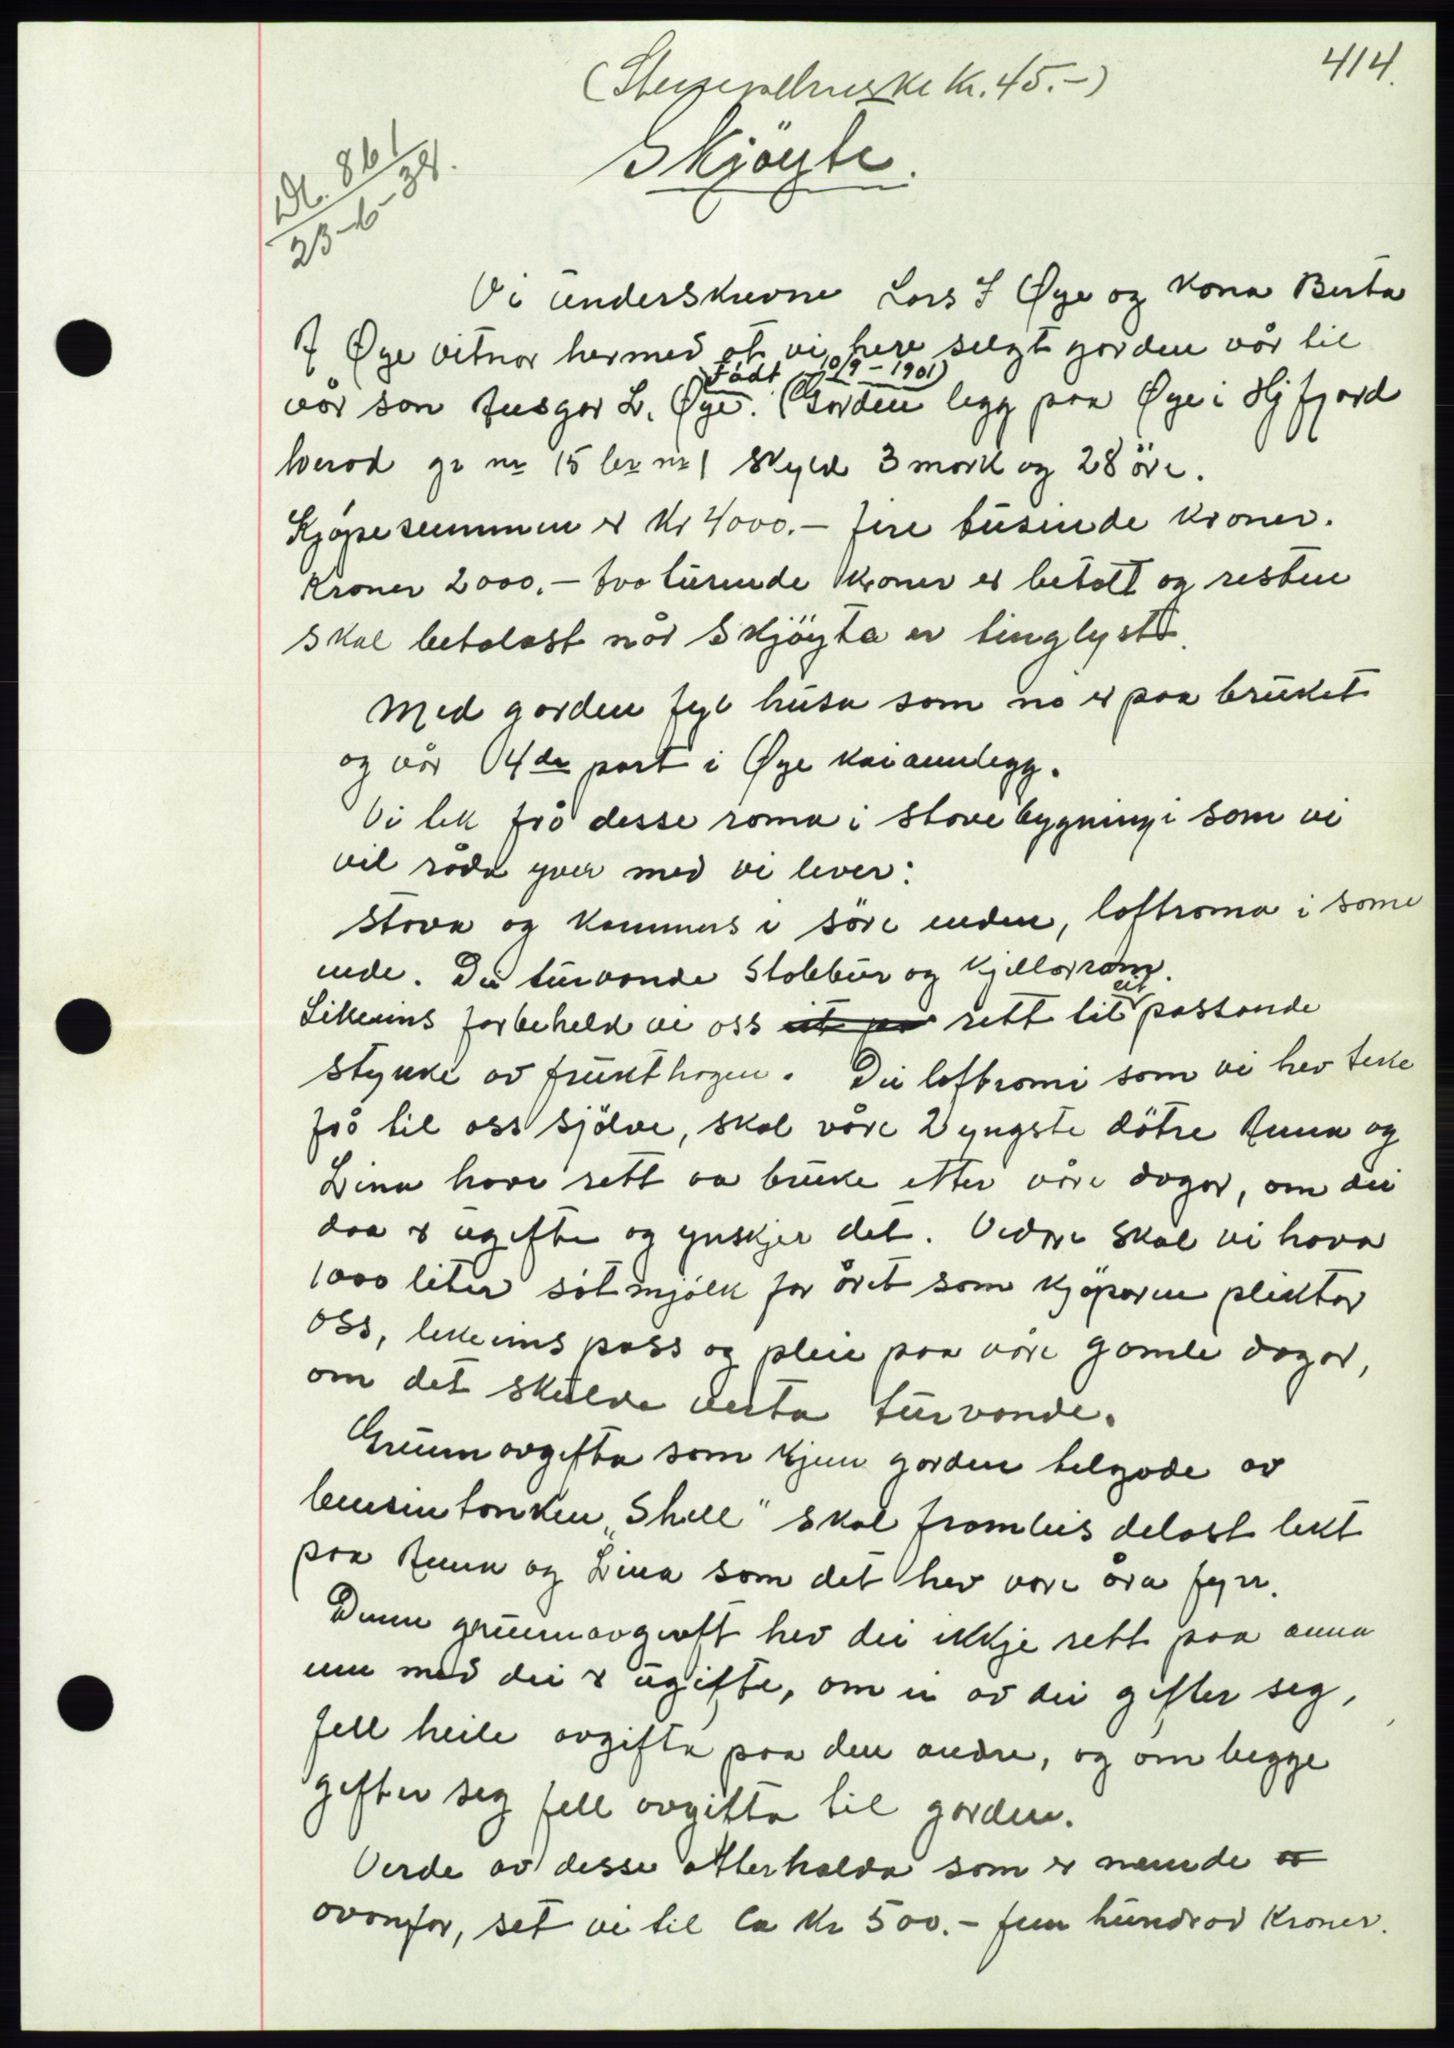 414.
(Stempelmerke kr. 45.-)
Skjöyte.
Db. 861
23-6-38.
Vi underskrevne Lars J Øye og kona Berta
J Øye vitnar hermed at vi heve selgt garden vår til
født 10/9-1901)
vår son Ansgar L. Øye. (Garden legg paa Øye i Hjfjord
herad gr nr 15 br nr 1 skyld 3 mark og 28 öre.
Kjöpesummen er Kr 4000.- fire tusinde kroner.
Kroner 2000.- tvo tusinde kroner er betalt og resten
skal betalast når skjöyta er tinglyst.
Med garden fyl husa som no er paa bruket
og vår 4de part i Øye kaiannlegg.
Vi tek frå desse roma i stovebygningi som vi
vil råda yver med vi lever:
Stova og kammers i söre enden, loftroma i same
ende. Dei turvande stabbur og kjellarrom.
eit
Likeeins forbeheld vi oss eit pa rett til passande
stykke av frukthagen. Dei loftromi som vi hev teke
frå til oss sjölve, skal våre 2 yngste dötre Anna og
Lina have rett aa bruke etter våre dagar, om dei
daa er ugifte og ynskjer det. Vidare skal vi hava
1000 liter sötmjölk for året som kjöparen pliktar
oss, likeeins pass og pleie paa våre gamle dagar,
om det skulde verta turvande.
Grunnavgifta som kjem garden tilgode av
bensintanken "Shell" skal framleis delast likt
paa Anna og Lina som det hev vore åra fyrr.
Denne grunnavgift hev dei ikkje rett paa anna
enn med dei er ugifte, om ei av dei gifter seg,
fell heile avgifta paa den andre, og om begge
gifter seg fell avgifta til garden.
Verde av desse atterhalda som er nemnde av
ovanfor, set vi til ca Kr 500.- fem hundrad kroner.